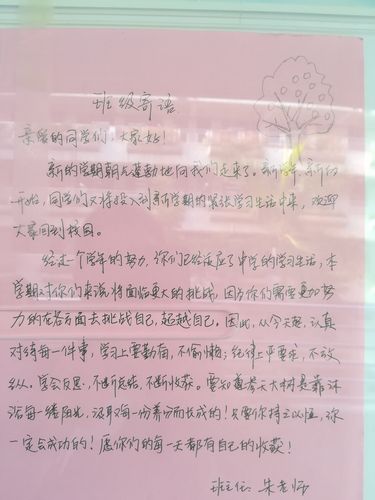 班级寄语
亲爱的同学们：大家好！
新的学期朝气蓬勃地向我们走来了，新学年、新的
开始，同学们又将投入到新学期的紧张学习生活中来，欢迎
大家回到校园。
经过一个学年的努力，你们已经适应了中学的学习生活，本
学期对你们来说将面临更大的挑战，因为你们需要更加努
力的在各方面去挑战自己，超越自己。因此，从今天起，认真
对待每一件事，学习上要勤奋，不偷懒；纪律上严要求，不放
纵，学会反思，不断总结，不断收获。要知道参天大树是靠沐
浴每一缕阳光，汲取每一份养分而长成的！只要你持之以恒，你
一定会成功的！愿你们的每一天都有自己的收获！
班主任：朱老师